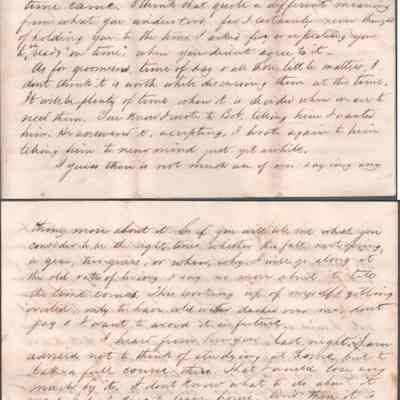 time came. I think that quite a different meaning
from what you understood, for I certainly never thought
of holding you to the time I asked for or expecting you
to "ready on time" when you did not agree to it —
As for groomsmen, time of day & all those little matters, I
dont think it is worth while discussing them at this time.
It will be plenty of time when it is decided when we are to
need them. You know I wrote to Bob, telling him I wanted
him. He answered it, accepting, I wrote again to him
telling him to never mind just yet awhile.
I guess there is not much use of our saying any
thing more about it. So if you will tell me what you
consider to be the right time whether his fall next spring,
a year, two years, or when, why I will go along at
the old rate of living & say no more about it till
the time comes. This working up of myself & getting
excited, only to have cold water dashed over me, dont
pay & I want to avoid it in future.
I heard from last night. I am
advised not to think of studying at home, but to
take a full course there. That I would lose
much by it. I don't know what to do about it
home. And then it is